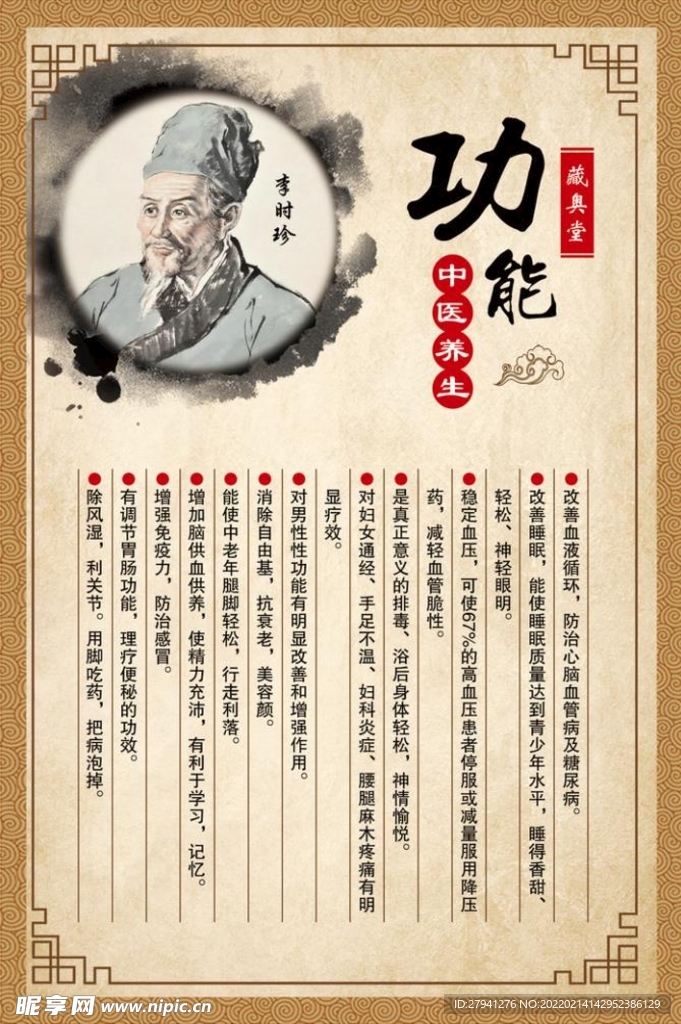 藏奥堂
功能
中医养生
李时珍
改善血液循环，防治心脑血管病及糖尿病。
改善睡眠，能使睡眠质量达到青少年水平，睡得香甜、
轻松、神轻眼明。
稳定血压，可使67%的高血压患者停服或减量服用降压
药，减轻血管脆性。
是真正意义的排毒、浴后身体轻松，神情愉悦。
对妇女通经、手足不温、妇科炎症、腰腿麻木疼痛有明
显疗效。
对男性性功能有明显改善和增强作用。
消除自由基，抗衰老，美容颜。
能使中老年腿脚轻松，行走利落。
增加脑供血供养，使精力充沛，有利于学习，记忆。
增强免疫力，防治感冒。
有调节胃肠功能，理疗便秘的功效。
除风湿，利关节。用脚吃药，把病泡掉。
昵享网 www.nipic.cn
ID:27941276 NO:20220214142952386129